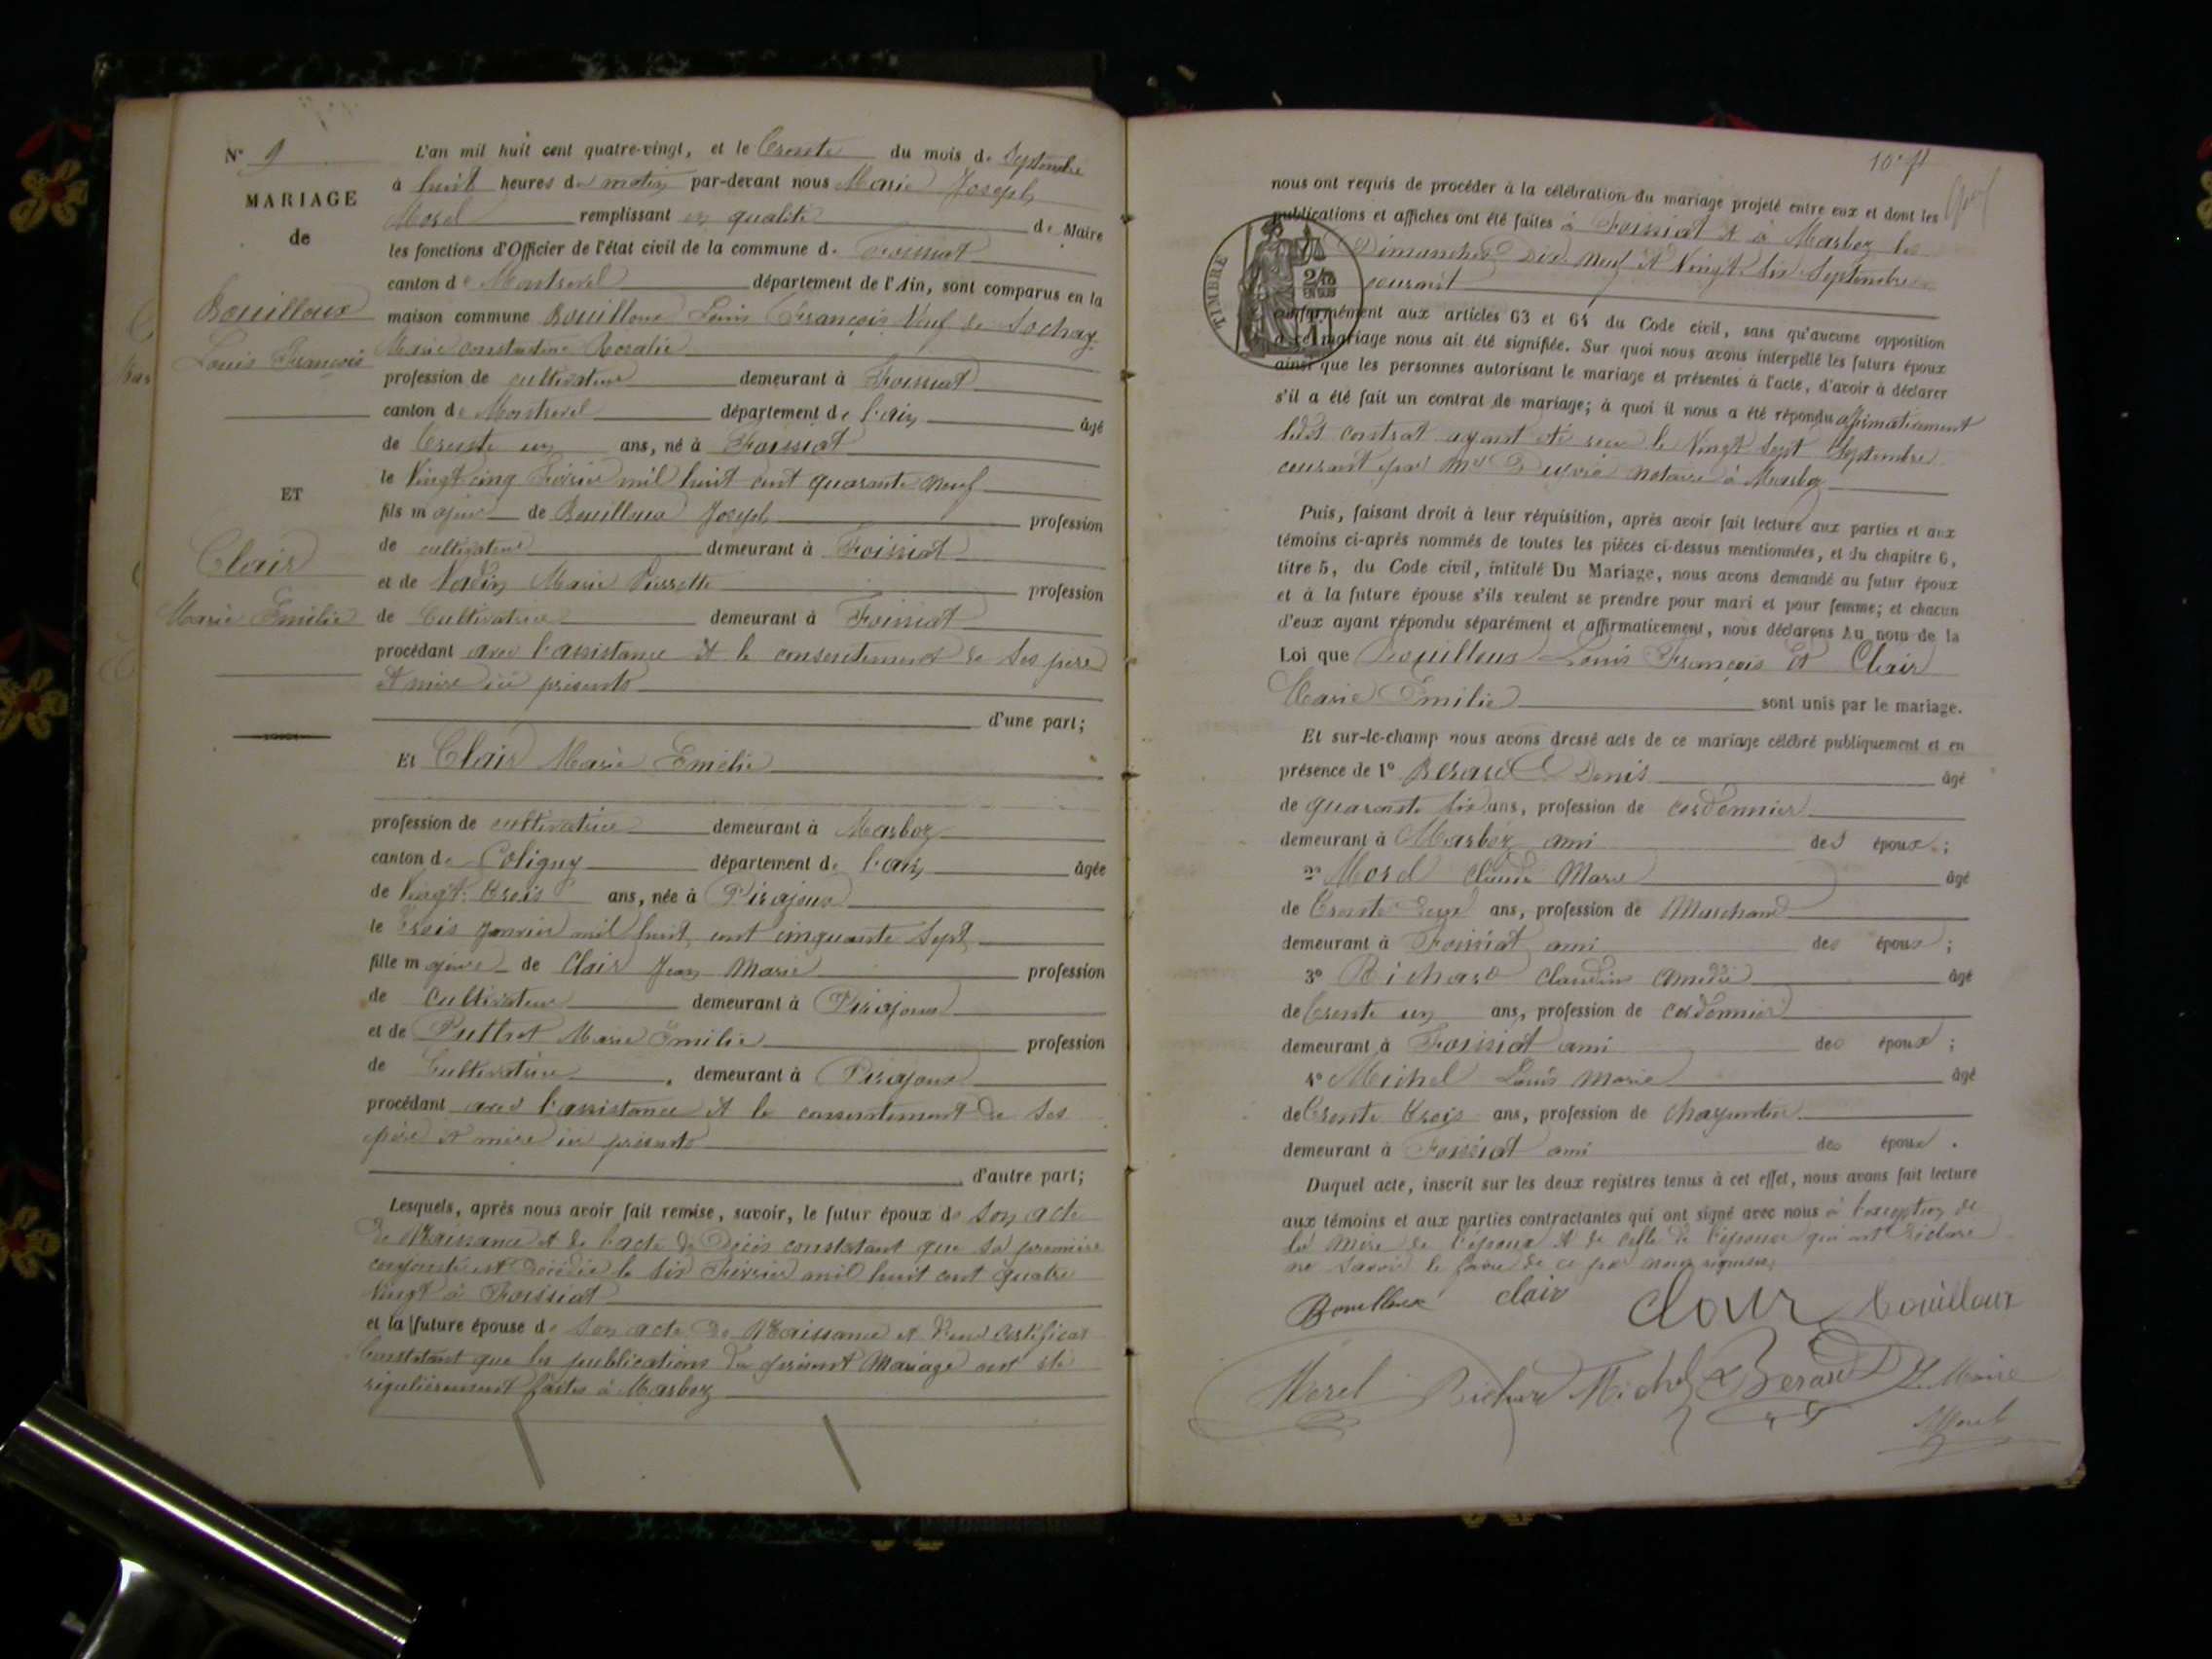 N° 9
MARIAGE
de
Bouilloux
Louis François
ET
Clair
Marie Emélie
L'an mil huit cent quatre-vingt, et le Trente du mois de Septembre
à huit heures du matin par-devant nous Marie Joseph
Morel remplissant en qualité de Maire
les fonctions d'Officier de l'état civil de la commune de Foissiat
canton de Montrevel département de l'Ain, sont comparus en la
maison commune Bouilloux Louis François Veuf de Sochay
Marie constantine Rosalie
profession de cultivateur demeurant à Foissiat
canton de Montrevel département de l'ain âgé
de Trente un ans, né à Foissiat
le Vingt cinq Février mil huit cent quarante neuf
fils majeur de Bouilloux Joseph profession
de cultivateur demeurant à Foissiat
et de Vadin Marie Pierrette profession
de Cultivatrice demeurant à Foissiat
procédant avec l'assistance et le consentement de ses père
et mère ici présents
d'une part;
Et Clair Marie Emélie
profession de cultivatrice demeurant à Marboz
canton de Coligny département de l'ain âgée
de Vingt-trois ans, née à Pirajoux
le Trois Janvier mil huit cent cinquante Sept
fille majeure de Clair Jean Marie profession
de Cultivateur demeurant à Pirajoux
et de Puthot Marie Emilie profession
de Cultivatrice, demeurant à Pirajoux
procédant avec l'assistance et le consentement de ses
père et mère ici présents
d'autre part;
Lesquels, après nous avoir fait remise, savoir, le futur époux de son acte
de Naissance et de l'acte de Décès constatant que sa première
conjointe est décédée le six Février mil huit cent quatre
vingt à Foissiat
et la future épouse de son acte de Naissance et d'un certificat
Constatant que les publications du présent Mariage ont été
régulièrement faites à Marboz
nous ont requis de procéder à la célébration du mariage projeté entre eux et dont les
publications et affiches ont été faites à Foissiat et à Marboz les
Dimanches Dix neuf et Vingt six Septembre
courant
TIMBRE
conformément aux articles 63 et 64 du Code civil, sans qu'aucune opposition
à ce mariage nous ait été signifiée. Sur quoi nous avons interpellé les futurs époux
ainsi que les personnes autorisant le mariage et présentes à l'acte, d'avoir à déclarer
s'il a été fait un contrat de mariage; à quoi il nous a été répondu affirmativement
ledit contrat ayant été reçu le Vingt Sept Septembre
courant par Me notaire à Marboz
Puis, faisant droit à leur réquisition, après avoir fait lecture aux parties et aux
témoins ci-après nommés de toutes les pièces ci-dessus mentionnées, et du chapitre 6,
titre 5, du Code civil, intitulé Du Mariage, nous avons demandé au futur époux
et à la future épouse s'ils veulent se prendre pour mari et pour femme; et chacun
d'eux ayant répondu séparément et affirmativement, nous déclarons Au nom de la
Loi que Bouilloux Louis François Et Clair
Marie Emilie sont unis par le mariage.
Et sur-le-champ nous avons dressé acte de ce mariage célébré publiquement et en
présence de 1° Berard Denis âgé
de quarante six ans, profession de cordonnier
demeurant à Marboz ami des époux;
2° Morel Claude Marie âgé
de Trente deux ans, profession de Marchand
demeurant à Foissiat ami des époux;
3° Richard Claudin Amédée âgé
de Trente un ans, profession de cordonnier
demeurant à Foissiat ami des époux;
4° Michel Louis Marie âgé
de Trente trois ans, profession de Charpentier
demeurant à Foissiat ami des époux.
Duquel acte, inscrit sur les deux registres tenus à cet effet, nous avons fait lecture
aux témoins et aux parties contractantes qui ont signé avec nous à l'exception de
la Mère de l'époux et de celle de l'épouse qui ont déclaré
ne savoir le faire de ce par nous requises
Bouilloux clair Clair bouilloux
Morel Richard Michel Berard Le Maire
Morel